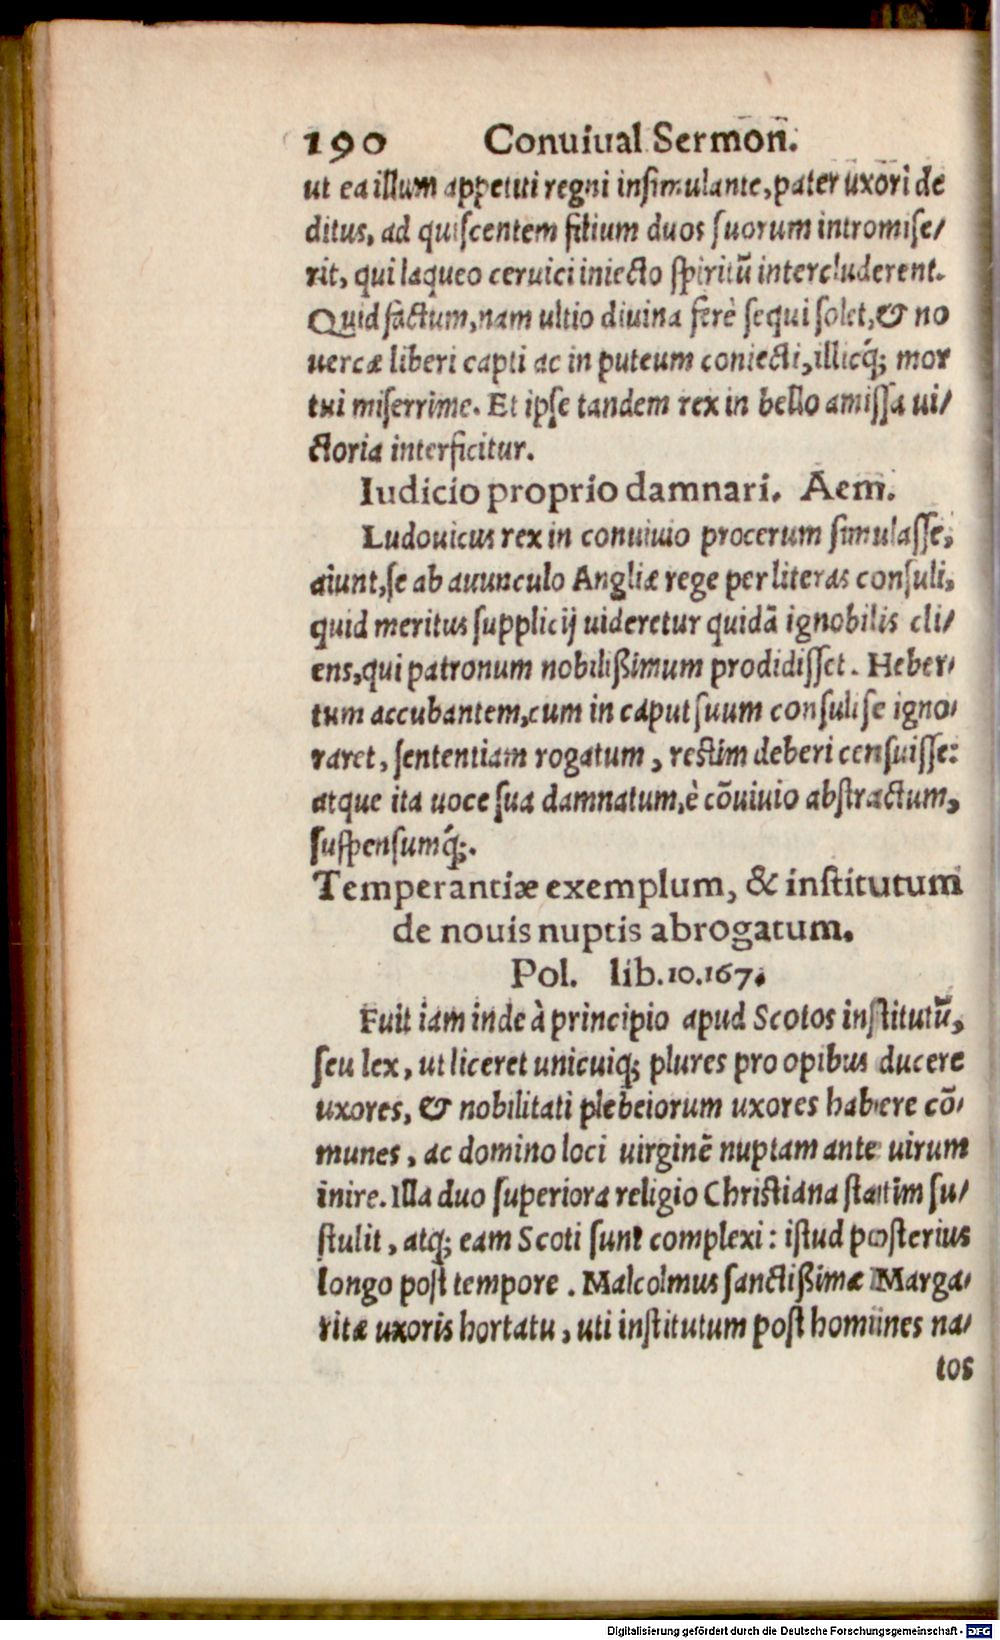 190 Conuiual Sermon̄.
ut ea illum appetiti regni insimulante, pater uxori de
ditus, ad quiscentem filium duos suorum intromise/
rit, qui laqueo ceruici iniecto spiritū intercluderent.
Quid factum, nam ultio diuina ferè sequi solet, & no
uercæ liberi capti ac in puteum coniecti, illicq́; mor
tui miserrime. Et ipse tandem rex in bello amissa ui/
ctoria interficitur.
Iudicio proprio damnari. Aem̄.
Ludouicus rex in conuiuio procerum simulasse,
aiunt, se ab auunculo Angliæ rege per literas consuli,
quid meritus supplicij uideretur quidā ignobilis cli/
ens, qui patronum nobilißimum prodidisset. Heber/
tum accubantem, cum in caput suum consuli se igno/
raret, sententiam rogatum, restim deberi censuisse:
atque ita uoce sua damnatum, è cōuiuio abstractum,
suspensumq́;.
Temperantiæ exemplum, & institutum
de nouis nuptis abrogatum.
Pol. lib. 10. 167.
Fuit iam inde à principio apud Scotos institutū,
seu lex, ut liceret unicuiq; plures pro opibus ducere
uxores, & nobilitati plebeiorum uxores habere cō/
munes, ac domino loci uirginē nuptam ante uirum
inire. Illa duo superiora religio Christiana statim su/
stulit, atq; eam Scoti sunt complexi: istud posterius
longo post tempore. Malcolmus sanctißimæ Marga/
ritæ uxoris hortatu, uti institutum post homines na/
tos
Digitalisierung gefördert durch die Deutsche Forschungsgemeinschaft - DFG